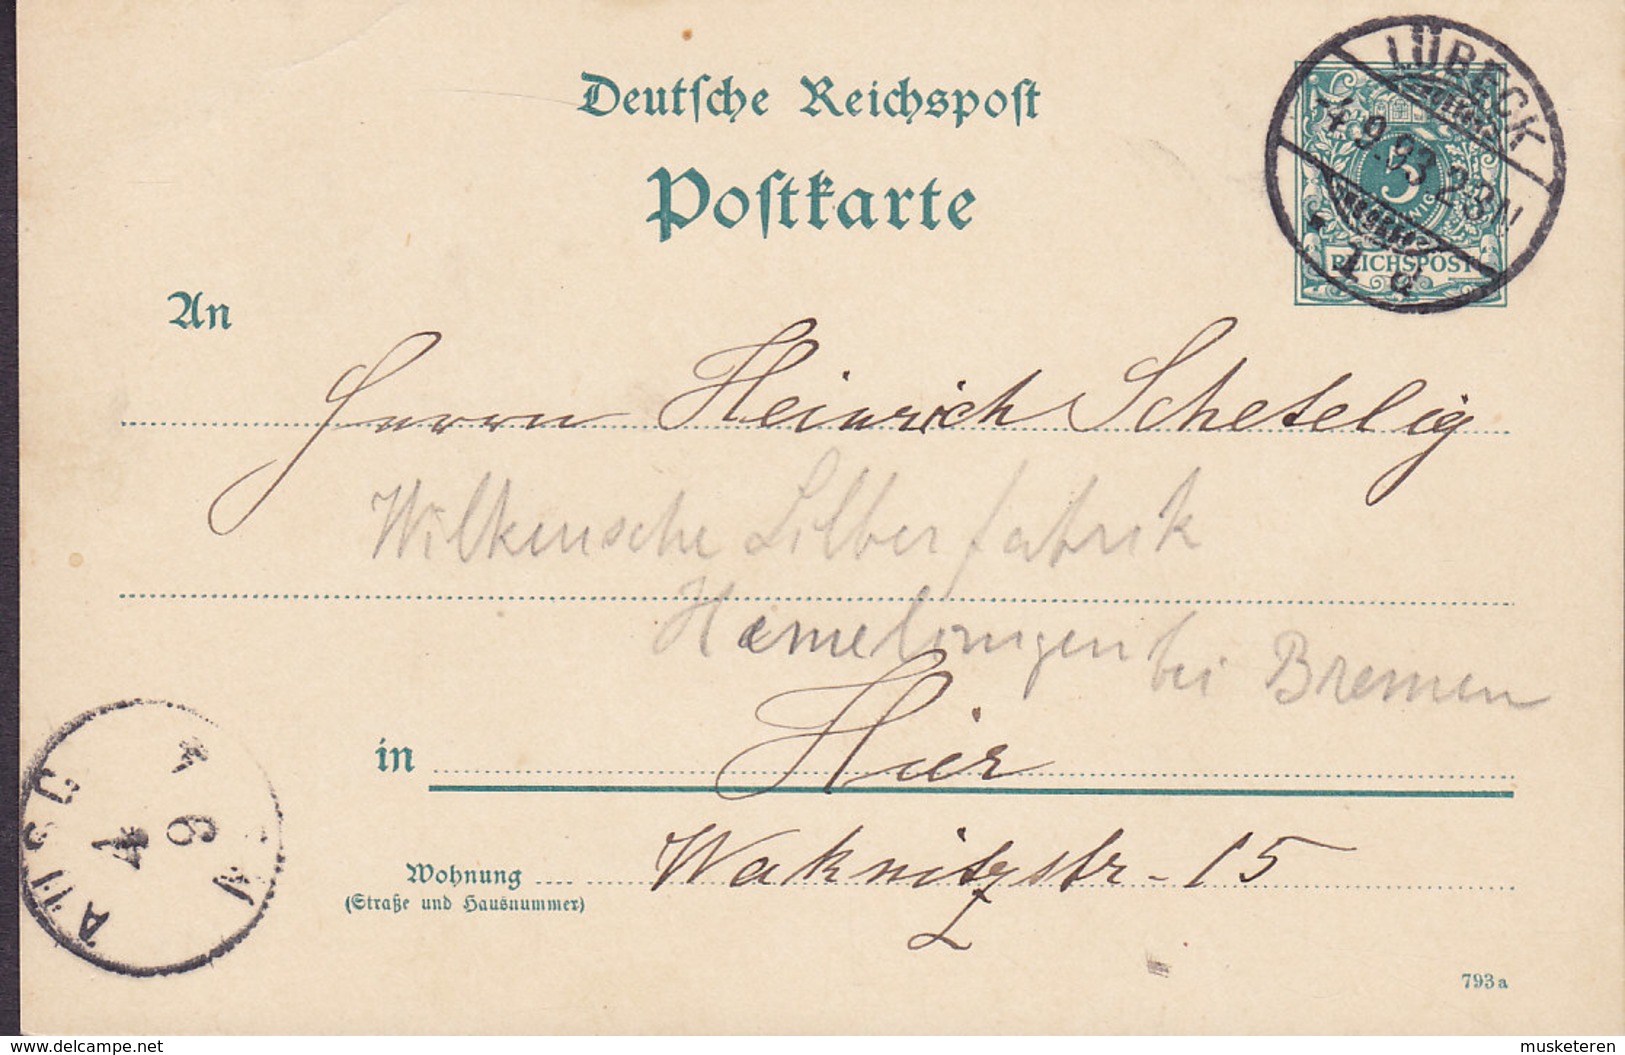 Deutsche Reichspost
Postkarte
LÜBECK
4.9.93. 2-3N
1 d
5
REICHSPOST
An
Herrn Heinrich Schetelig
Wilkensche Silberfabrik
Hemelingen bei Bremen
in Hier
Wohnung Waknitzstr. 15
(Straße und Hausnummer)
AUSG
4
9
793 a
www.delcampe.net
musketeren